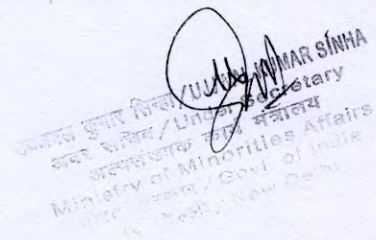 कुमार सिन्हा/UJ KUMAR SINHA
अवर सचिव/Under Secretary
अल्पसंख्यक कार्य मंत्रालय
Ministry of Minorities Affairs
/Govt. of India
New Delhi